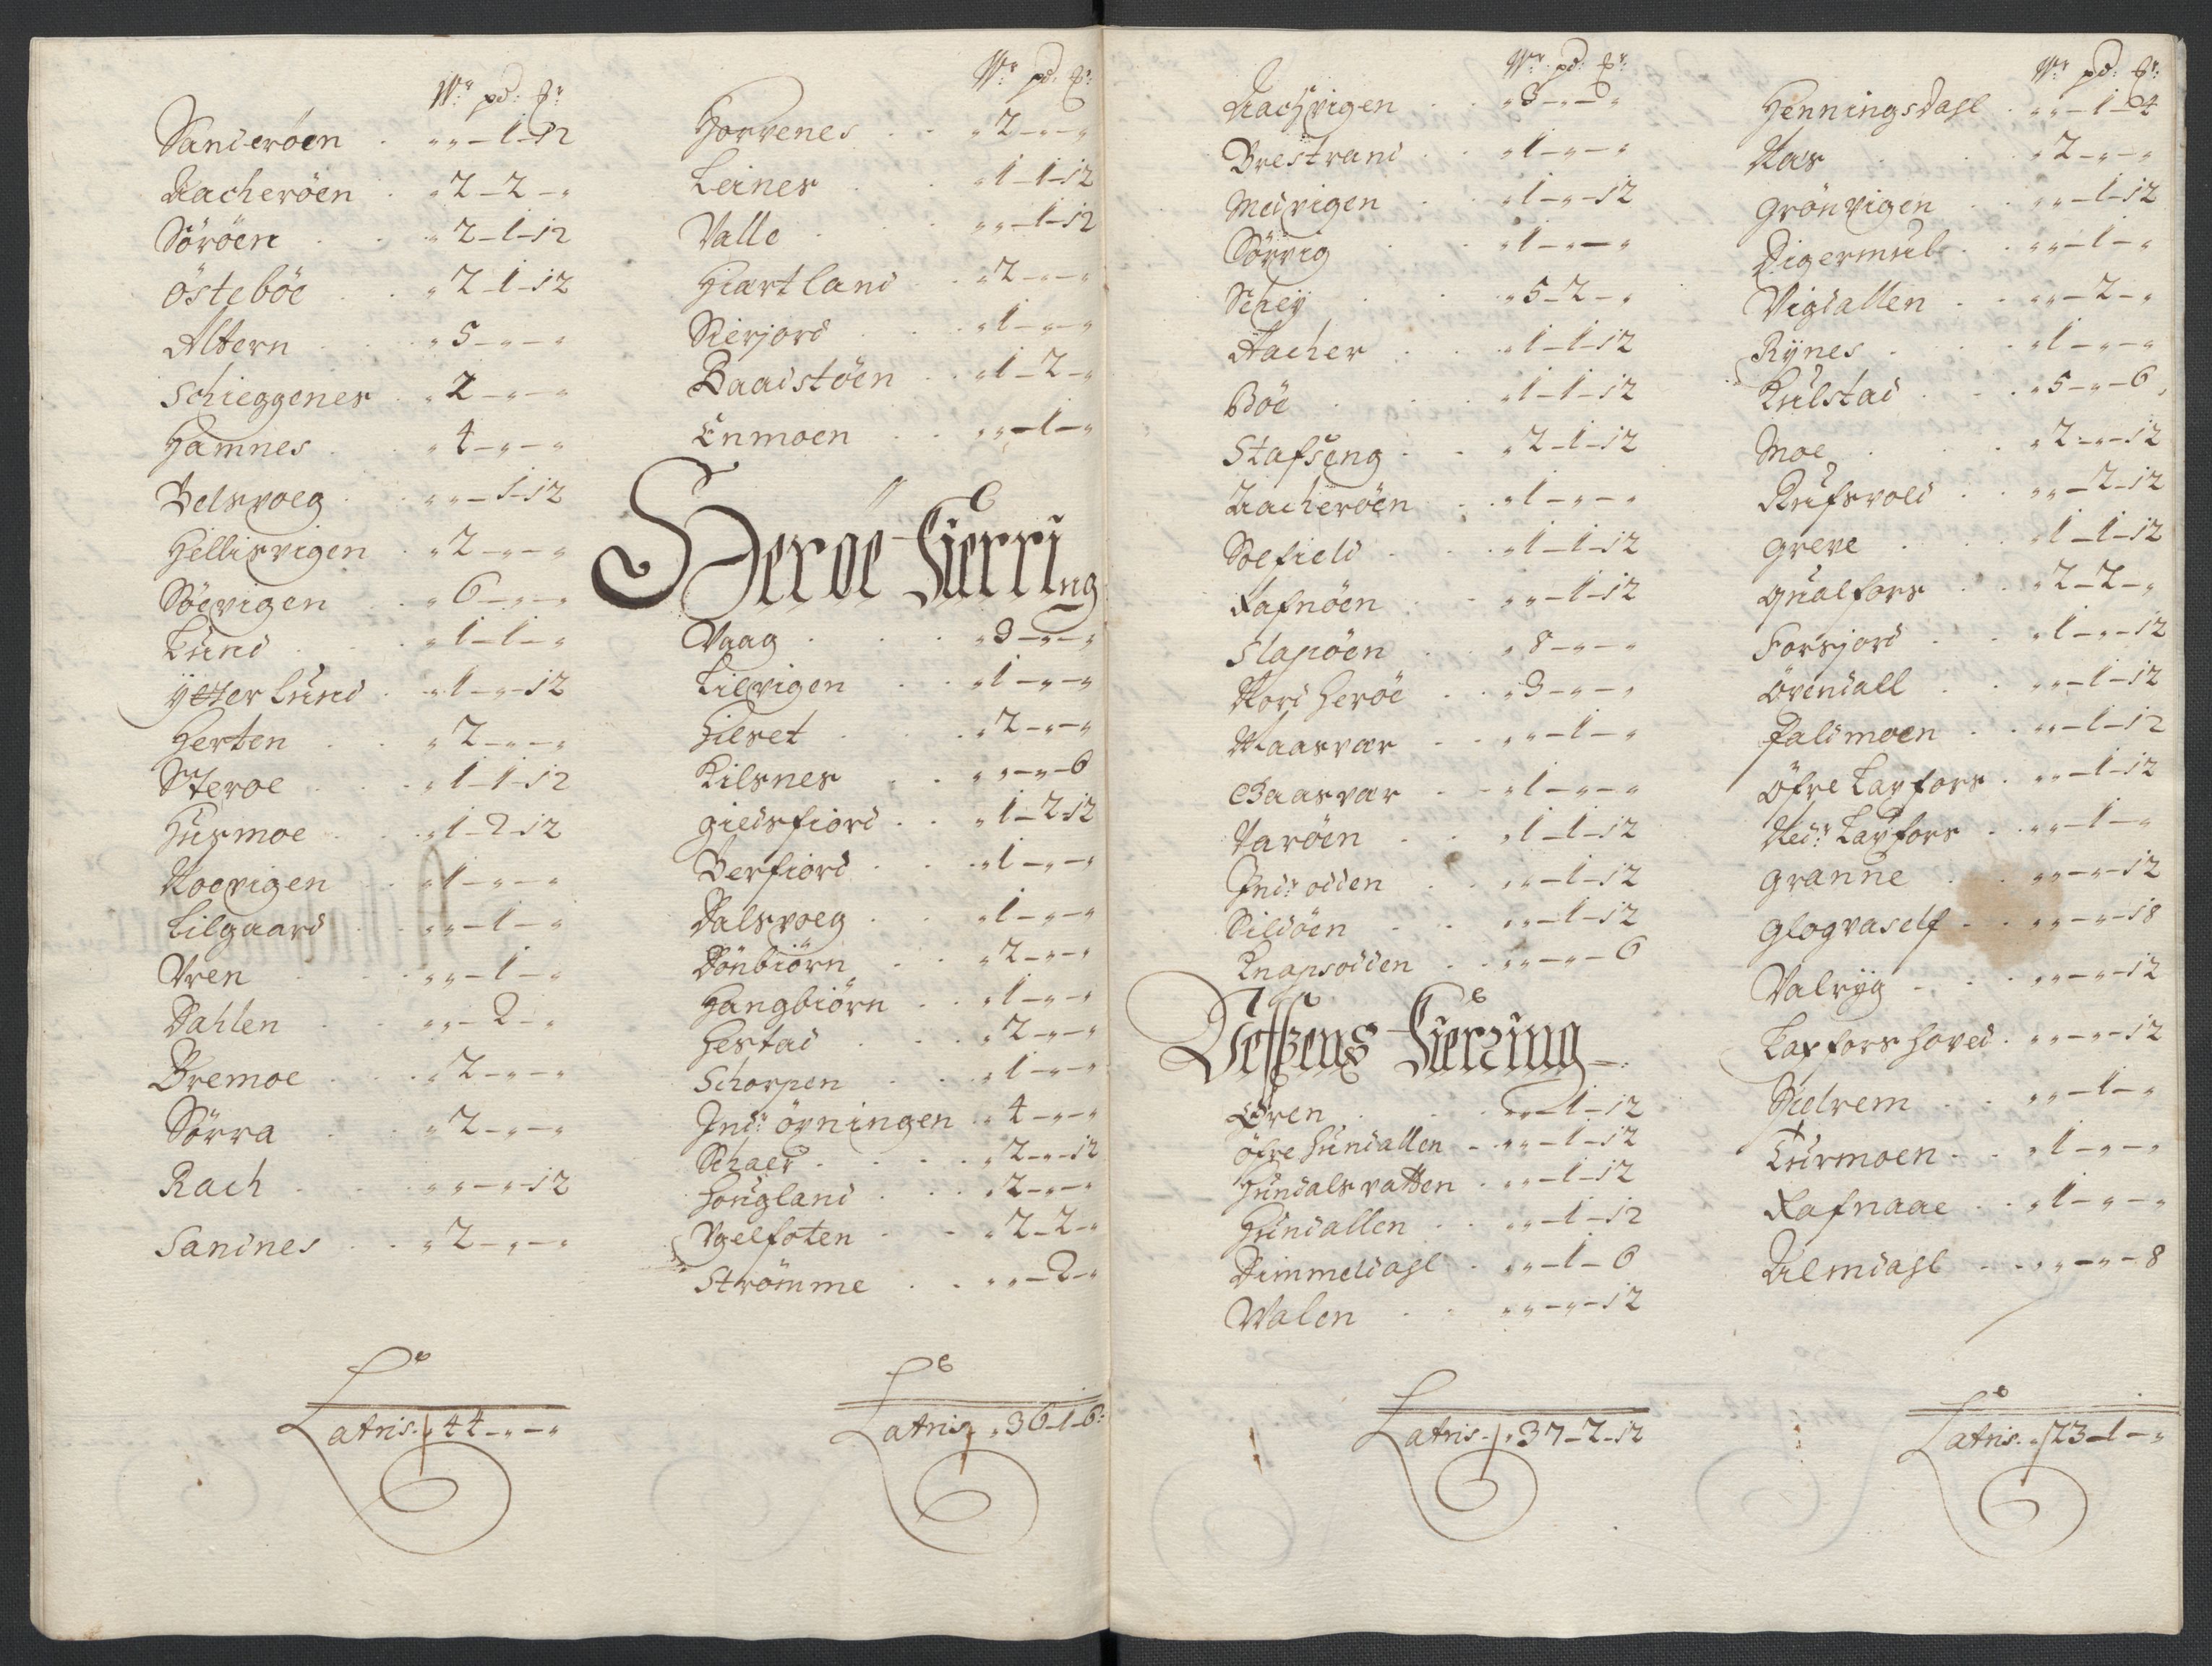 Wr pd: Er:
Sanderöen . „ „ – 1 – 12
Aacheröen . „ 2 – 2 – „
Söröen . . „ 2 – 1 – 12
Östeböe . . „ 2 – 1 – 12
Altern . . „ 5 – „ – „
Schieggenes . „ 2 – „ – „
Hamnes . „ 4 – „ – „
Belsvoeg . „ „ – 1 – 12
Hellisvigen . „ 2 – „ – „
Söevigen . . „ 6 – „ – „
Lund . . „ 1 – 1 – „
ÿtter Lund . „ 1 – „ – 12
Herten . . „ 2 – „ – „
Steroe . . „ 1 – 1 – 12
Husmoe . . „ 1 – 2 – 12
Noevigen . . „ 1 – „ – „
Lilgaard . . „ „ – 1 – „
Vren . . „ „ – 1 – „
Dahlen . . „ „ – 2 – „
Bremoe . . „ 2 – „ – „
Sörra . . „ 2 – „ – „
Rach . . „ „ – „ – 12
Sandnes . . „ 2 – „ – „
Latris . „ 44 – „ – „
Wr pd: Er:
Horvenes . . „ 2 – „ – „
Leines . . „ 1 – 1 – 12
Valle . . „ „ – 1 – 12
Hiartland . „ 2 – „ – „
Skerjord . . „ 1 – „ – „
Baadstöen . . „ 1 – 2 – „
Enmoen . . „ „ – 1 – „
Heröe Fierring
Vaag . . . „ 3 – „ – „
Lilvigen . . „ 1 – „ – „
Hilset . . „ 2 – „ – „
Kilsnes . . „ „ – „ – 6
Giedsfiord . . „ 1 – 2 – 12
Berfiord . . „ 1 – „ – „
Dalsvoeg . . „ 1 – „ – „
Dönbiörn . . „ 2 – „ – „
Hangbiörn . . „ 1 – „ – „
Hestad . . „ 2 – „ – „
Schorpen . . „ 1 – „ – „
Indr: öyningen . „ 4 – „ – „
Schaer . . . „ 2 – „ – 12
Hougland . . „ 2 – „ – „
Vgelfoten . – „ 2 – 2 – „
Strömme . . „ „ – 2 – „
Latris „ 36 – 1 – 6:
Wr pd: Er:
Aachvigen . . „ 3 – „ – „
Brestrand . . „ 1 – „ – „
Medvigen . . „ 1 – „ – 12
Sörvig . . „ 1 – „ – „
Scheÿ . . „ 5 – 2 – „
Aacher . . „ 1 – 1 – 12
Böe . . „ 1 – 1 – 12
Stafseng . – „ 2 – 1 – 12
Aacheröen . . „ 1 – „ – „
Soefield . . „ 1 – 1 – 12
Rafnöen . . „ „ – 1 – 12
Slapöen . . „ 8 – „ – „
Nord Heröe . „ 3 – „ – „
Maasvær . . „ „ – 1 – „
Gaasvær . – „ 1 – „ – „
Varöen . . „ 1 – 1 – 12
Indr: odden . . „ „ – 1 – 12
Sildöen . . „ „ – 1 – 12
Knapsodden . . „ „ – „ – 6
Vefsens Fierring
Ören . . . „ „ – 1 – 12
öfre Hundallen – „ „ – 1 – 12
Hundals vatten . „ „ – 1 – 12
Hundallen . . „ „ – 1 – 12
Dimmeldahl . „ „ – 1 – 6
Walen . . „ „ – „ – 12
Latris . „ 37 – 2 – 12
Wr pd: Er:
Henningsdahl . „ „ – 1 – 4
Næs . . „ 2 – „ – „
Grönvigen . . „ „ – 1 – 12
Digermul . . „ „ – 1 – „
Vigdallen . . „ „ – 2 – „
Rÿnes . . . „ 1 – „ – „
Kulstad . . . „ 5 – „ – 6
Moe . . . „ 2 – „ – 12
Rufsvold . . „ „ – 2 – 12
Greve . . „ 1 – 1 – 12
Qualfors . . „ 2 – 2 – „
Forsjord . . „ 1 – „ – 12
övendall . . „ „ – 1 – 12
Paldmoen . . „ „ – 1 – 12
öfre Laxfors . „ „ – 1 – 12
Nedr: Laxfors . „ „ – 1 – „
Granne . . „ „ – „ – 12
Glogvaself . . „ „ – „ – 18
Valrÿg . . . „ „ – „ – 12
Laxfors hoved . „ „ – „ – 12
Sielrem . . „ „ – 1 – „
Turmoen . . „ 1 – „ – „
Rafnaae . . „ 1 – „ – „
Almdahl . . „ „ – „ – 8
Latris . „ 23 – 1 – „